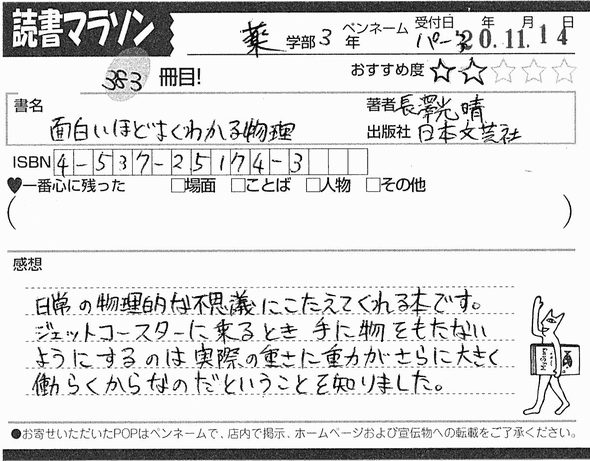 読書マラソン
薬 学部 3 年
ペンネーム パーズ
受付日 年 月 日
20.11.14
383 冊目!
おすすめ度 ☆☆☆☆☆
書名 面白いほどよくわかる物理
著者 長澤光晴
出版社 日本文芸社
ISBN 4-537-25174-3
♥一番心に残った □場面 □ことば □人物 □その他
( )
感想
日常の物理的な不思議にこたえてくれる本です。
ジェットコースターに乗るとき手に物をもたない
ようにするのは実際の重さに重力がさらに大きく
働らくからなのだということを知りました。
●お寄せいただいたPOPはペンネームで、店内で掲示、ホームページおよび宣伝物への転載をご了承ください。